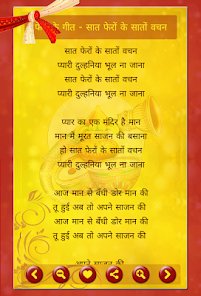 के गीत - सात फेरों के सातों वचन
सात फेरों के सातों वचन
प्यारी दुल्हनिया भूल ना जाना
सात फेरों के सातों वचन
प्यारी दुल्हनिया भूल ना जाना
प्यार का एक मंदिर है मान
मान में मूरत साजन की बसाना
हो सात फेरों के सातों वचन
प्यारी दुल्हनिया भूल ना जाना
आज मान से बँधी डोर मान की
तू हुई अब तो अपने साजन की
आज मान से बँधी डोर मान की
तू हुई अब तो अपने साजन की
अपने साजन की